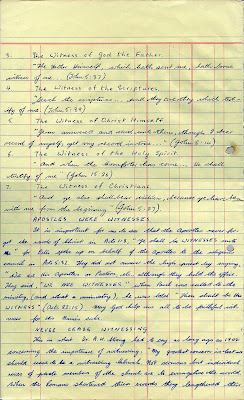 3. The Witness of God the Father.
"The Father Himself, which hath sent me, hath borne
witness of me. (John 5:37)
4. The Witness of the Scriptures.
"Search the scriptures... and they are they which
of me. (John 5:39)
5. The Witness of Christ Himself.
"Jesus answered and said unto them, though I bear
record of myself, yet my record is true..." (John 8:14)
6. The Witness of the Holy Spirit.
"And when the Comforter is come... He shall
testify of me (John 15:26)
7. The Witness of Christians.
"And ye also shall bear witness, because ye have been
with me from the beginning" (John 15:27)
APOSTLES WERE WITNESSES
It is important for us to see that the Apostles never
the words of Christ in Acts 1:8, "Ye shall be WITNESSES unto
me" for Peter spoke up on behalf of the Apostles to the religious
council in Acts 5:32. They did not answer the high priest by saying
"We are his Apostles or Pastors, etc. although they held the office.
They said, "WE ARE WITNESSES" When Paul was called to the
ministry, (and what a ministry), he was told "Thou shalt be his
WITNESS" (Acts 22:15) May God help us all to be faithful
NEVER CEASE WITNESSING
This is what Dr. A.H. Strong had to say as long ago as 1906
concerning the importance of witnessing: "My greatest concern is that we
should
of private members of the church are to evangelize the world.
When the Romans shortened their swords they lengthened their